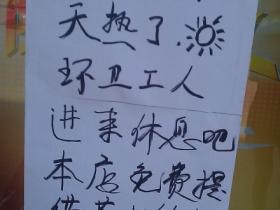 天热了
环卫工人
进来休息吧
本店免费提
供